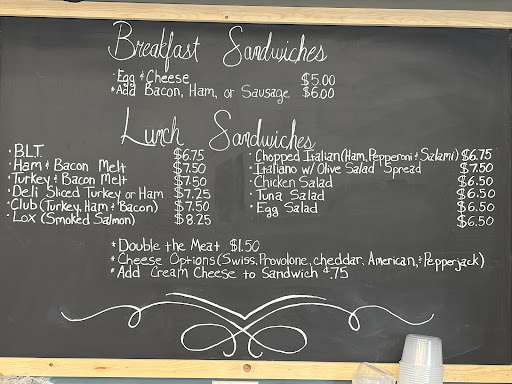 Breakfast Sandwiches
· Egg & Cheese $5.00
* Add Bacon, Ham, or Sausage $6.00
Lunch Sandwiches
· B.L.T. $6.75
· Ham & Bacon Melt $7.50
· Turkey & Bacon Melt $7.50
· Deli Sliced Turkey or Ham $7.25
· Club (Turkey, Ham & Bacon) $7.50
· Lox (Smoked Salmon) $8.25
· Chopped Italian (Ham, Pepperoni & Salami) $6.75
· Italiano w/ Olive Salad Spread $7.50
· Chicken Salad $6.50
· Tuna Salad $6.50
· Egg Salad $6.50
$6.50
* Double the Meat $1.50
* Cheese Options (Swiss, Provolone, cheddar, American, & Pepperjack)
* Add Cream Cheese to Sandwich $.75